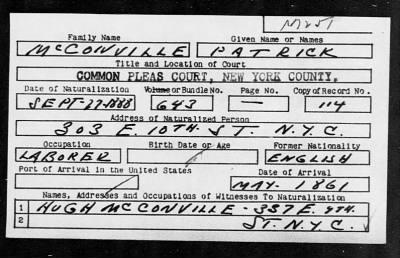 M251
Family Name Given Name or Names
McCONVILLE PATRICK
Title and Location of Court
COMMON PLEAS COURT, NEW YORK COUNTY.
Date of Naturalization Volume or Bundle No. Page No. Copy of Record No.
SEPT-27-1888 643 — 114
Address of Naturalized Person
303 E. 10TH. ST. N.Y.C.
Occupation Birth Date or Age Former Nationality
LABORER ENGLISH
Port of Arrival in the United States Date of Arrival
MAY. 1861
Names, Addresses and Occupations of Witnesses To Naturalization
1 HUGH McCONVILLE - 337 E.
2 ST. N.Y.C.